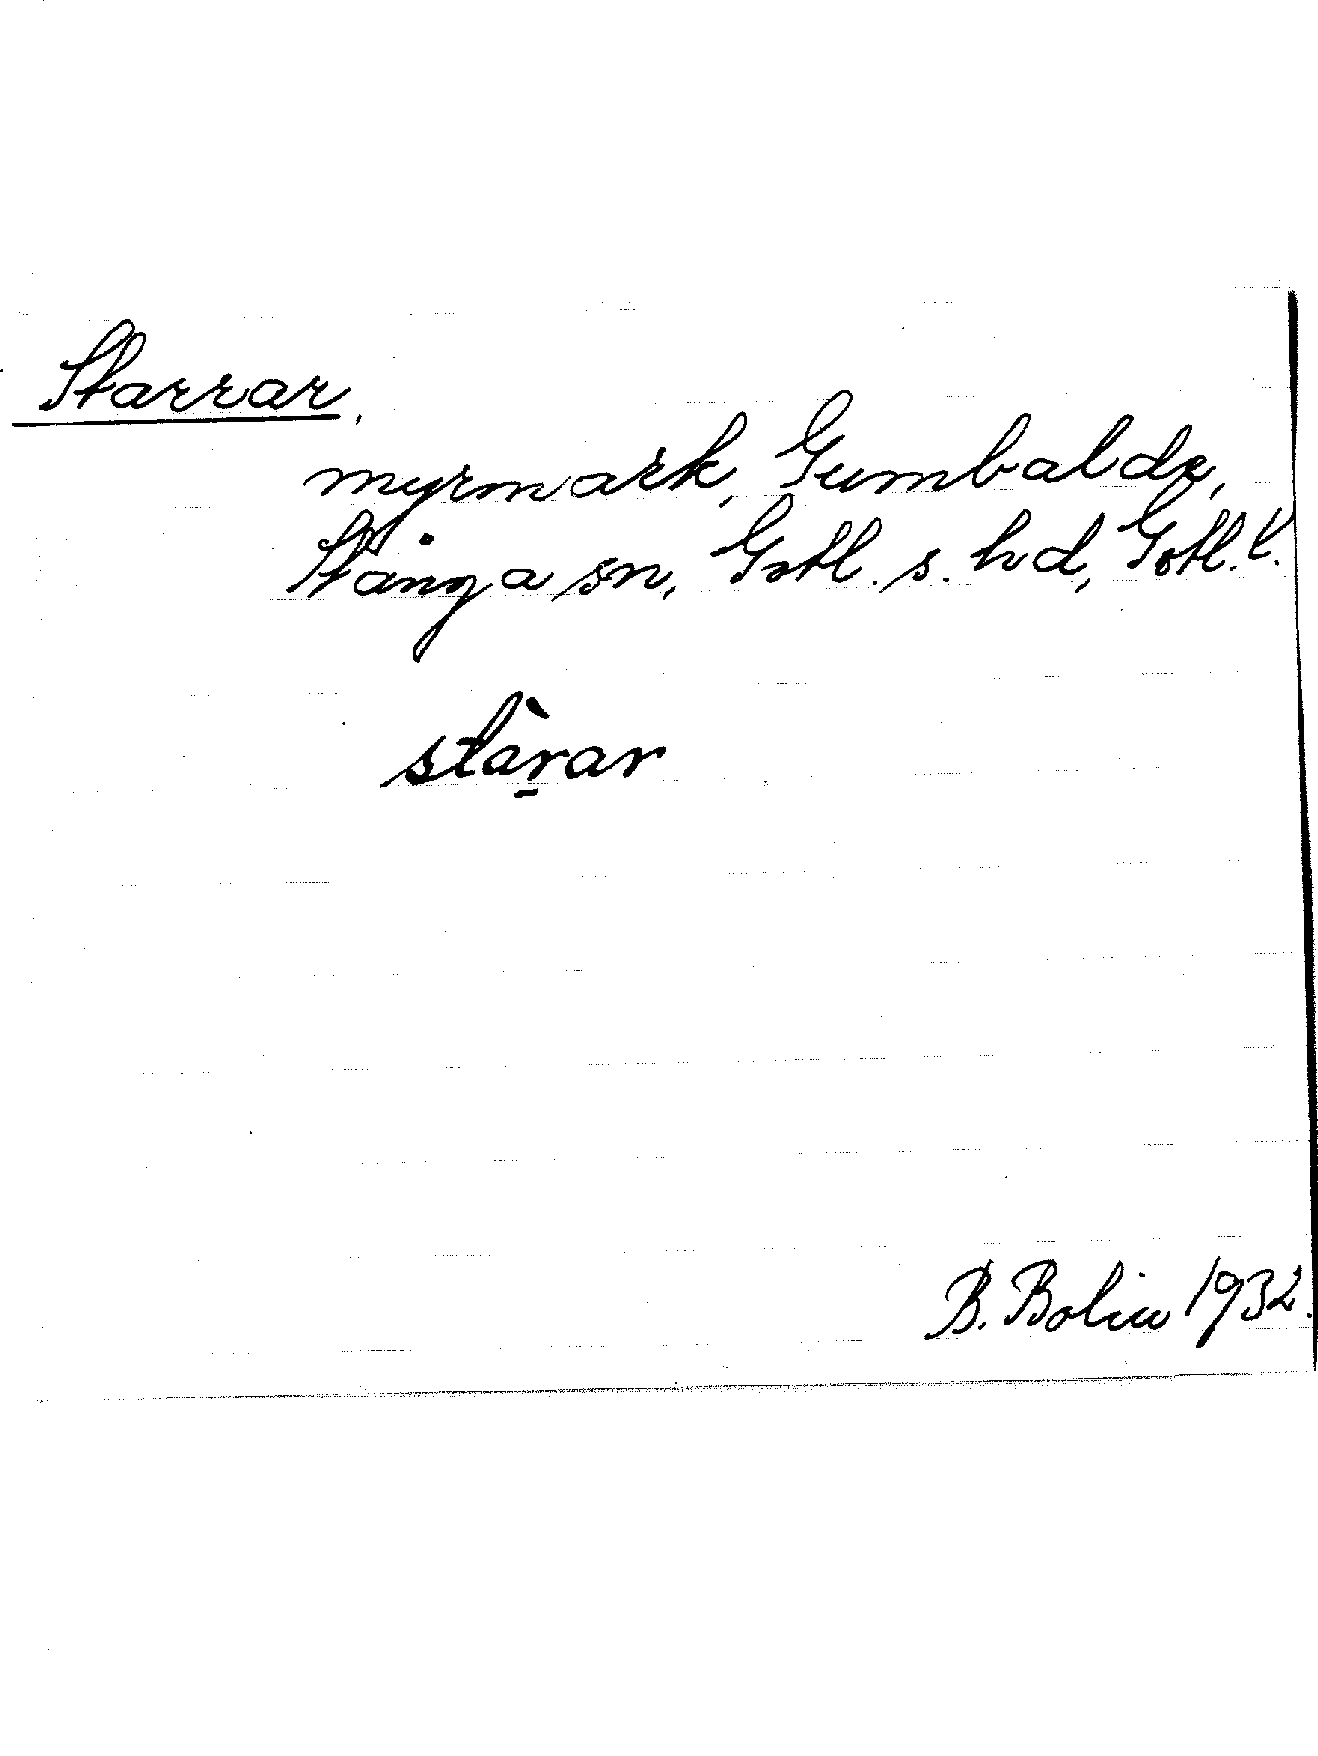 Starrar,
myrmark, Gumbalde,
Stånga sn, Gotl. s. hd, Gotl. l.
stàr̠ar
B. Bolin 1932.